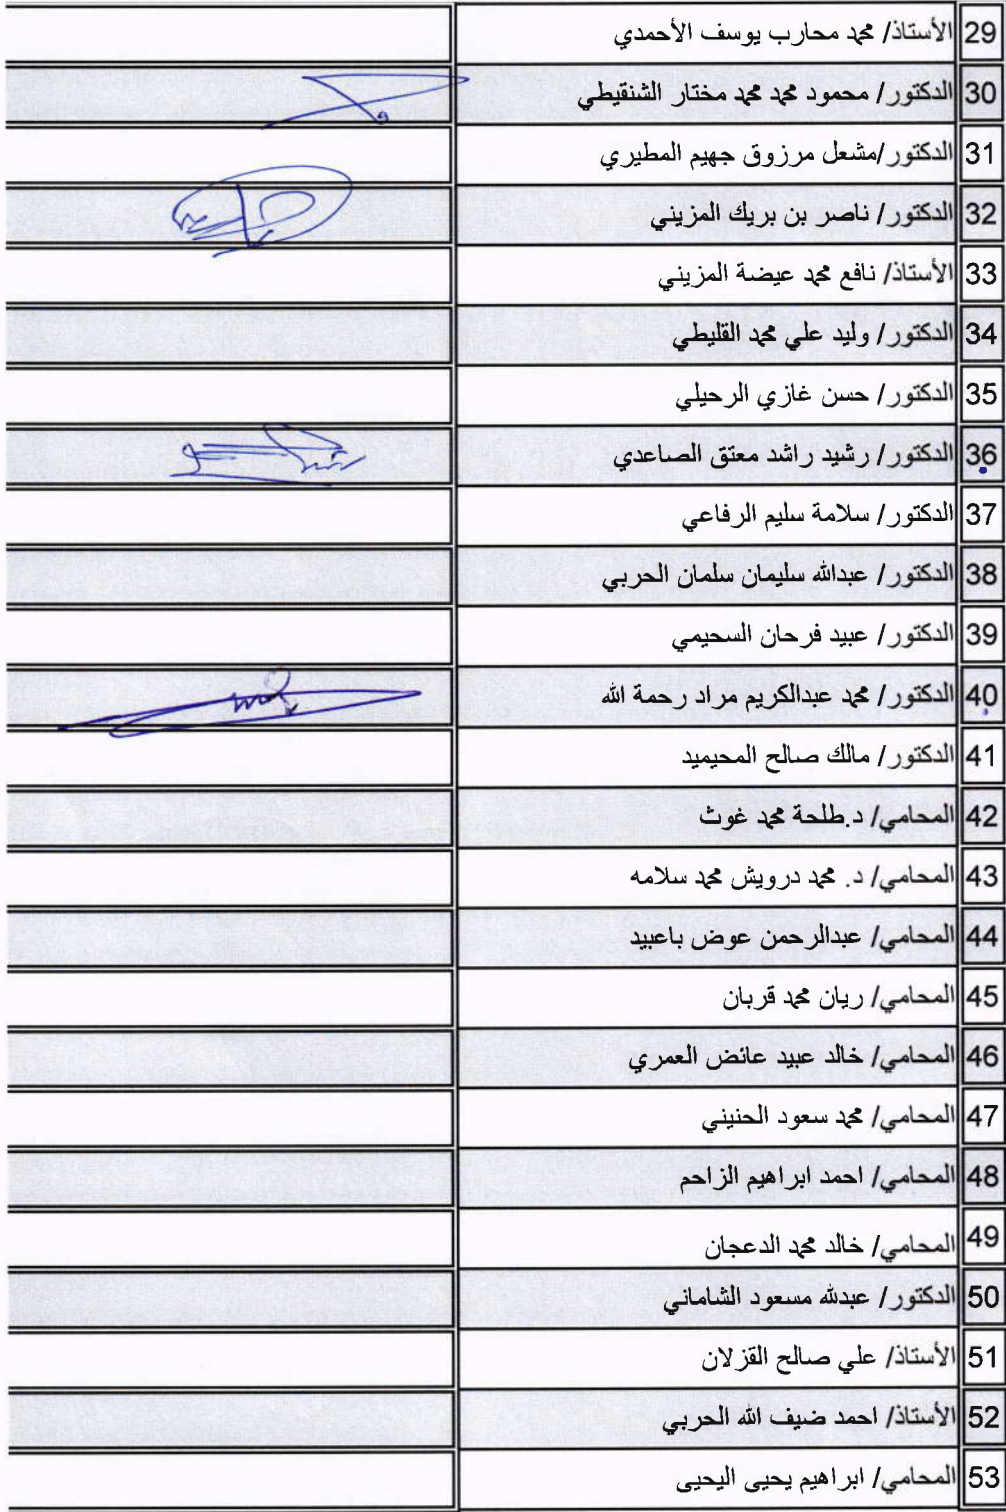 29 الأستاذ/ محمد محارب يوسف الأحمدي
30 الدكتور/ محمود محمد محمد مختار الشنقيطي
31 الدكتور/مشعل مرزوق جهيم المطيري
32 الدكتور/ ناصر بن بريك المزيني
33 الأستاذ/ نافع محمد عيضة المزيني
34 الدكتور/ وليد علي محمد القليطي
35 الدكتور/ حسن غازي الرحيلي
36 الدكتور/ رشيد راشد معتق الصاعدي
37 الدكتور/ سلامة سليم الرفاعي
38 الدكتور/ عبدالله سليمان سلمان الحربي
39 الدكتور/ عبيد فرحان السحيمي
40 الدكتور/ محمد عبدالكريم مراد رحمة الله
41 الدكتور/ مالك صالح المحيميد
42 المحامي/ د.طلحة محمد غوث
43 المحامي/ د. محمد درويش محمد سلامه
44 المحامي/ عبدالرحمن عوض باعبيد
45 المحامي/ ريان محمد قربان
46 المحامي/ خالد عبيد عائض العمري
47 المحامي/ محمد سعود الحنيني
48 المحامي/ احمد ابراهيم الزاحم
49 المحامي/ خالد محمد الدعجان
50 الدكتور/ عبدلله مسعود الشاماني
51 الأستاذ/ علي صالح القزلان
52 الأستاذ/ احمد ضيف الله الحربي
53 المحامي/ ابراهيم يحيى اليحيى